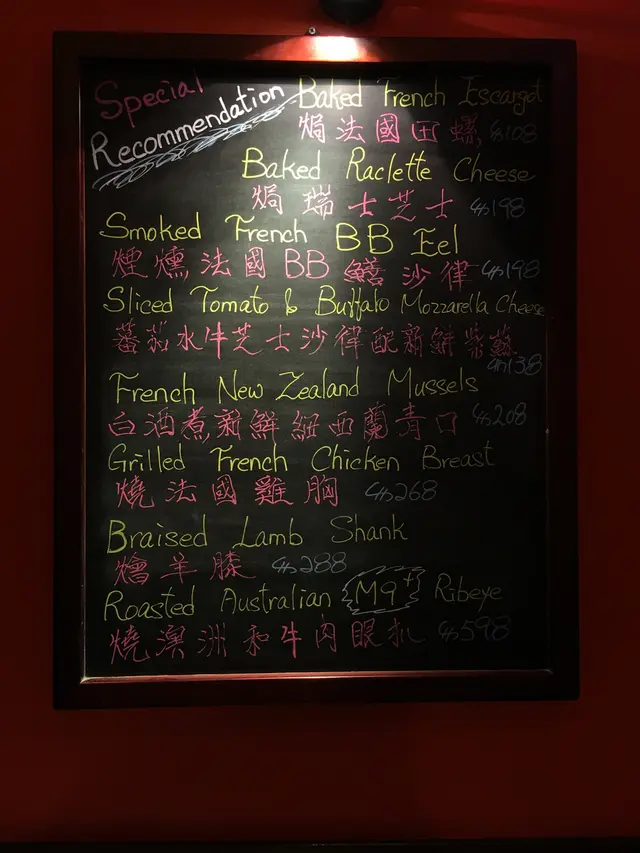 Special
Recommendation
Baked French Escargot
焗法國田螺 $108
Baked Raclette Cheese
焗瑞士芝士 $198
Smoked French BB Eel
煙燻法國BB鱔沙律 $198
Sliced Tomato & Buffalo Mozzarella Cheese
蕃茄水牛芝士沙律配新鮮紫蘇
$138
French New Zealand Mussels
白酒煮新鮮紐西蘭青口 $208
Grilled French Chicken Breast
燒法國雞胸 $268
Braised Lamb Shank
燴羊膝 $288
Roasted Australian M9+ Ribeye
燒澳洲和牛肉眼扒 $598